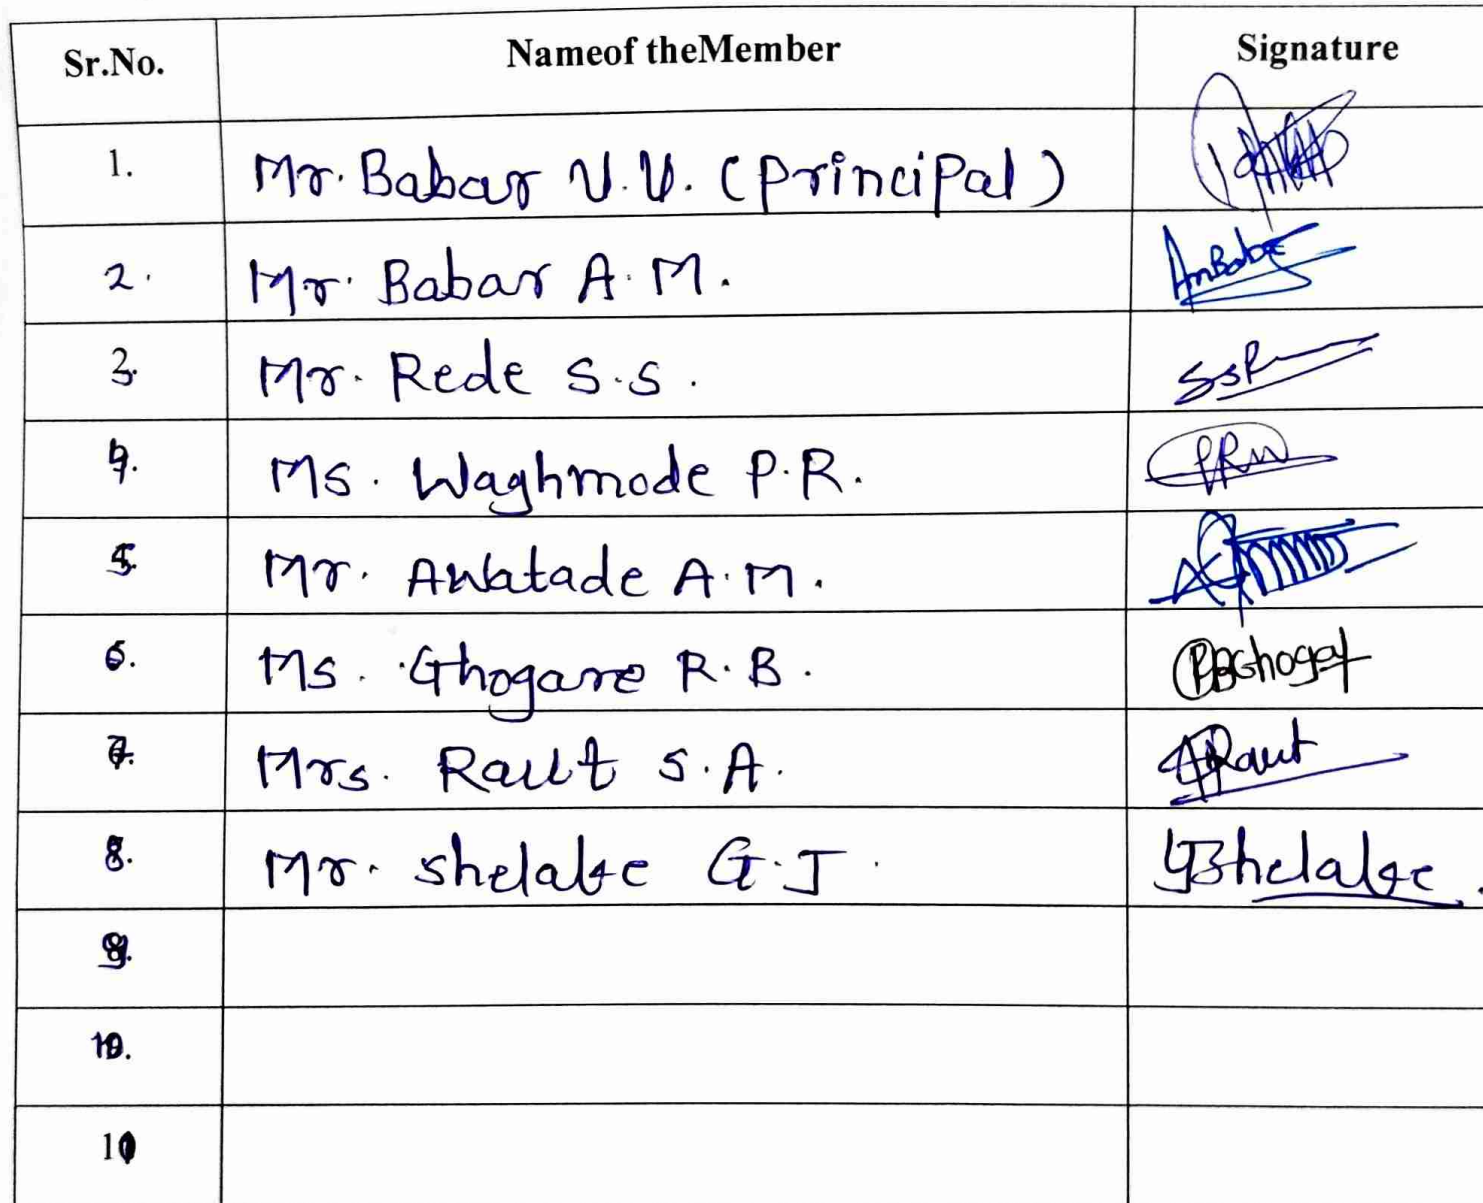 Sr.No. Nameof theMember Signature
1. Mr. Babar V.V. (Principal)
2. Mr. Babar A.M. AmBabar
3. Mr. Rede S.S. SSR
4. Ms. Waghmode P.R. PRW
5. Mr. Awatade A.M.
6. Ms. Ghogare R.B. RBGhogar
7. Mrs. Raut S.A. Raut
8. Mr. Shelake G.J. GJShelake.
9.
10.
11